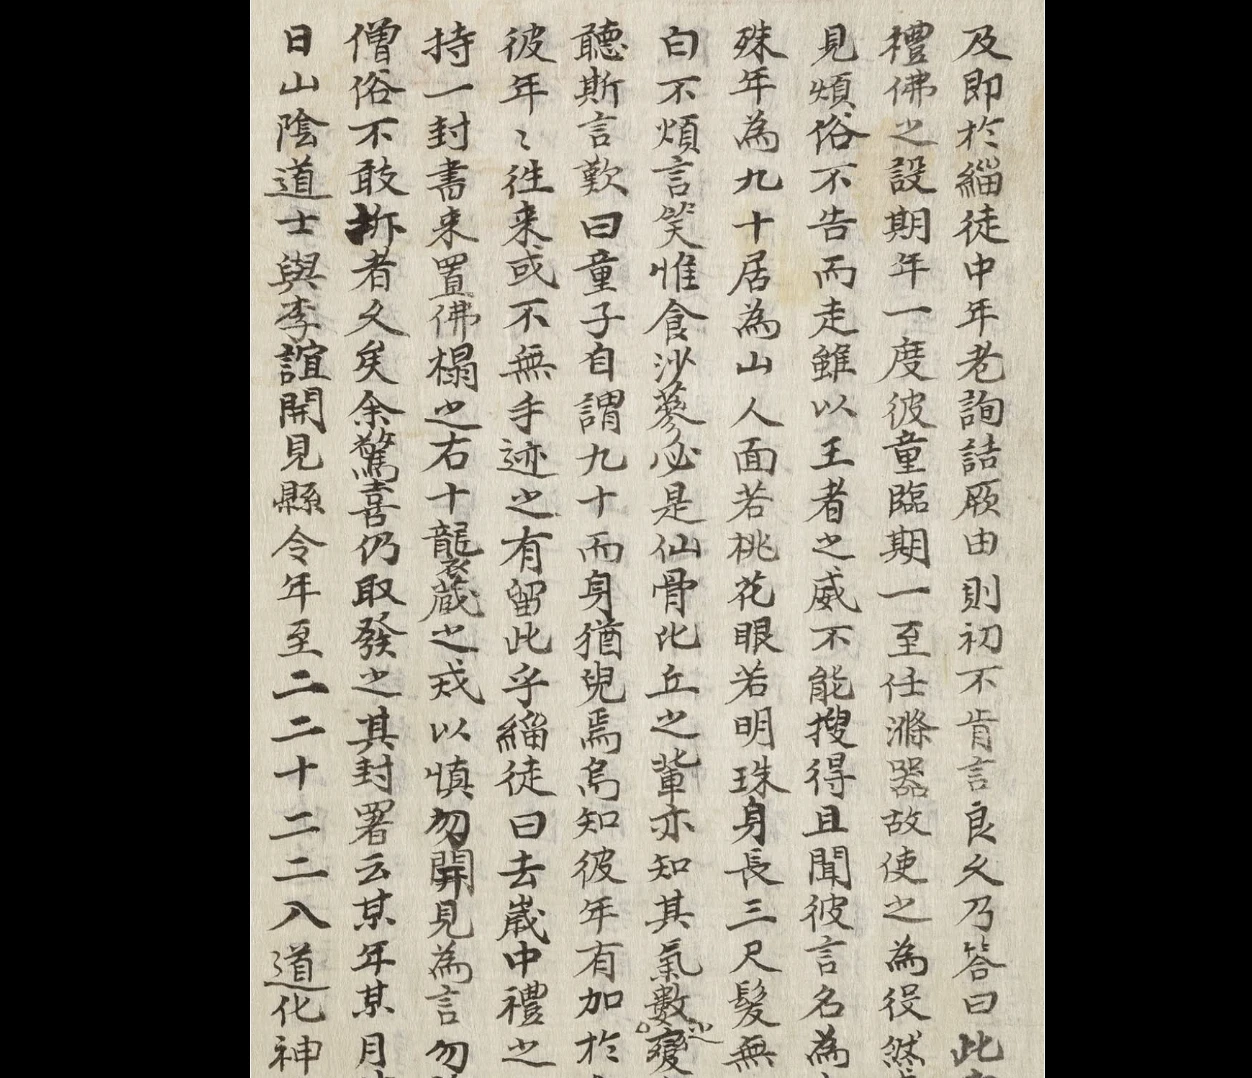 及即於緇徒中年老詢詰厥由則初不肯言良久乃答曰此
禮佛之設期年一度彼童臨期一至任滌器故使之為役然
見煩俗不告而走雖以王者之威不能搜得且聞彼言名為
殊年為九十居為山人面若桃花眼若明珠身長三尺髮無
白不煩言笑惟食沙蔘必是仙骨比丘之輩亦知其氣數之變
聽斯言歎曰童子自謂九十而身猶兒焉烏知彼年有加於
彼年〻徃来或不無手迹之有留此乎緇徒曰去嵗中禮之
持一封書来置佛榻之右十襲蔵之戎以慎勿開見為言勿
僧俗不敢坼者久矣余驚喜仍取發之其封署云某年某月
日山陰道士與李誼開見縣令年至二二十二二八道化神